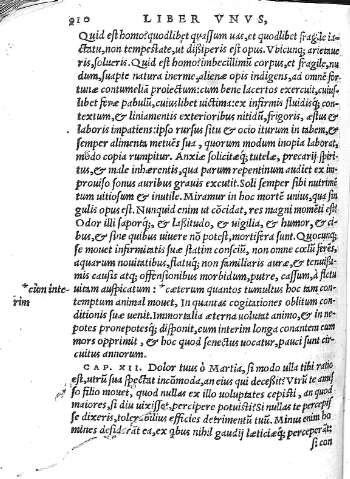 910 LIBER VNVS,
Quid est homo? quodlibet quassum uas, et quodlibet fragile ia-
ctatu, non tempestate, ut dissiperis est opus. Vbicunq; arietaue
ris, solueris. Quid est homo? imbecillum corpus, et fragile, nu
dum, suapte natura inerme, alienæ opis indigens, ad omnē for-
tunæ contumeliā proiectum: cum bene lacertos exercuit, cuius-
libet feræ pabulū, cuiuslibet uictima: ex infirmis fluidisq; con-
textum, & liniamentis exterioribus nitidū, frigoris, æstus &
laboris impatiens: ipso rursus situ & ocio iturum in tabem, &
semper alimenta metuēs sua, quorum modum inopia laborat,
modo copia rumpitur. Anxiæ solicitæq; tutelæ, precarij spiri-
tus, & male inhærentis, qua parum repentinum audiet ex im-
prouiso sonus auribus grauis excutit. Soli semper sibi nutrimē
tum uitiosum & inutile. Miramur in hoc mortē unius, qua sin
gulis opus est. Nunquid enim ut cōcidat, res magni momēti est?
Odor illi saporq;, & lassitudo, & uigilia, & humor, & ci-
bus, & sine quibus uiuere nō potest, mortifera sunt. Quocunq;
se mouet infirmitatis suæ statim consciū, non omne cœlū ferēs,
aquarum nouitatibus, flatuq; non familiaris auræ, & tenuissi-
mis causis atq; offensionibus morbidum, putre, cassum, à fletu
*cùm inte- uitam auspicatum: *cæterum quantos tumultus hoc tam con-
rim temptum animal mouet, In quantas cogitationes oblitum con
ditionis suæ uenit. Immortalia æterna uolutat animo, & in ne-
potes pronepotesq; disponit, cum interim longa conantem eum
mors opprimit, & hoc quod senectus uocatur, pauci sunt cir-
cuitus annorum.
CAP. XII. Dolor tuus ô Martia, si modo ulla tibi ratio
est, utrū sua spectat incūmoda, an eius qui decessit? Vtrū te amis
so filio mouet, quod nullas ex illo uoluptates cepisti, an quod
maiores, si diu uixisset, percipere potuisti? Si nullas te percepis
se dixeris, tolerabilius efficies detrimentū tuū. Minus enim ho
mines desiderāt ea, ex qbus nihil gaudij lætitiæq; perceperāt:
si con